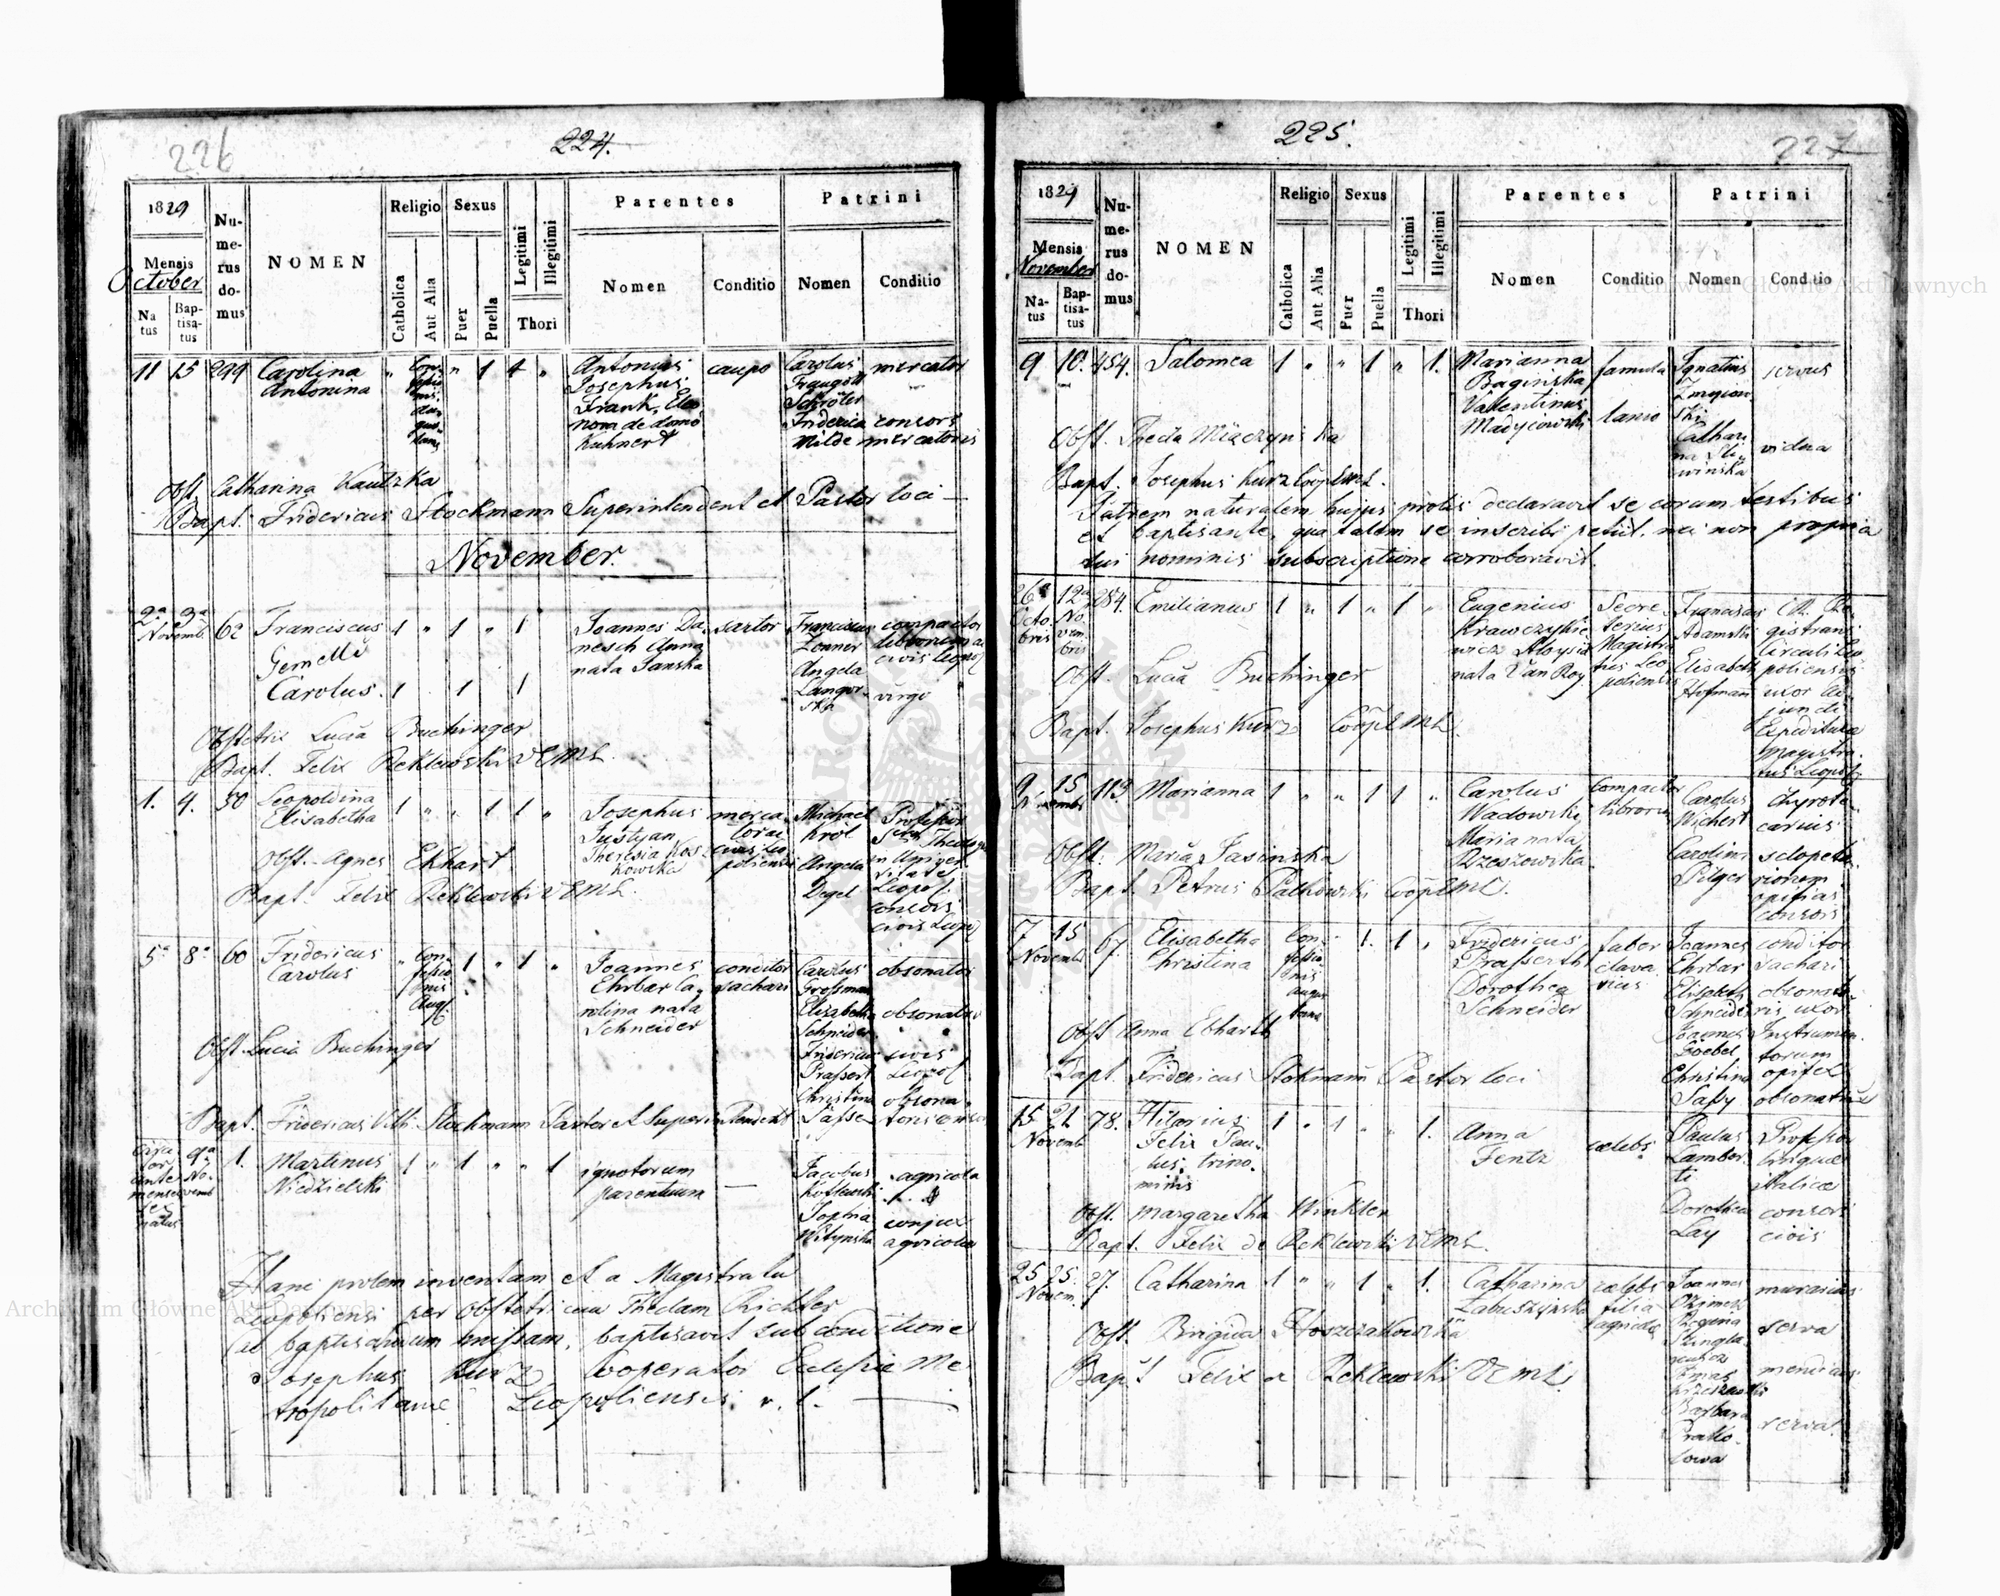 226
224.
1829
Numerus domus
NOMEN
Religio
Sexus
Legitimi
Illegitimi
Thori
Parentes
Patrini
Mensis
October
Natus
Baptisatus
Catholica
Aut Alia
Puer
Puella
Nomen
Conditio
Nomen
Conditio
11 15 299 Carolina Antonina
" 1 1 "
Antonius Josephus Frank, Eleonora de domo Kuhnert
caupo
Carolus Traugott Schröter
mercator
Friderica Milde
consors mercatoris
Obst. Catharina Kautzka
Bapt. Fridericus Stockmann Superintendent et Pastor loci
November.
2a 3a Novemb. 62 Franciscus 1 " 1 " 1
Gemelli
Carolus. 1 1 1
Joannes Danesch Anna nata Janska
sartor
Franciscus Zenner
compactor librorum ac civis Leopol
Angela
virgo
Obstetrix Lucia Buchinger
Bapt. Felix Reklewski VEML.
1. 4. 50 Leopoldina Elisabetha 1 " " 1 1 "
Josephus Justyan Theresia Koskowska
mercator ac civis Leopoliensis
Michael Król
Angela Degel
consors civis Leopol
Obst. Agnes Ekhart
Bapt. Felix Reklewski VEML.
5a 8a 60 Fridericus Carolus
" Confessionis Aug. 1 " 1 "
Joannes Ehrbar Carolina nata Schneider
conditor sachari
Carolus Grossman
obsonator
Elizabetha Schneider
obsonator
Fridericus Prassert
civis Leopol
Christina
obsonatoris
Obst. Lucia Buchinger
Bapt. Fridericus Wilh. Stockmann Pastor et Superintendent
9a Novemb 1. Martinus Niedzielski 1 " 1 " " 1
ignotorum parentum
—
Jacobus
agricola
Sophia
conjux agricolae
Hanc prolem inventam et a Magistratu
Leopoliensi per obstetricem Theclam Richter
ad baptisandum missam, baptisavit sub conditione
Josephus Kurz Cooperator Ecclesiae Me-
tropolitanae Leopoliensis r. l.
225.
227
1829
Numerus domus
NOMEN
Religio
Sexus
Legitimi
Illegitimi
Thori
Parentes
Patrini
Mensis
November
Natus
Baptisatus
Catholica
Aut Alia
Puer
Puella
Nomen
Conditio
Nomen
Conditio
9 10. 454. Salomea 1 " " 1 " 1.
Marianna Baginska
famula
Valentinus Madycowski
lanio
Ignatius
servus
Catharina Sliwinska
vidua
Obst. Thecla Miączynska
Bapt. Josephus Kurz CoopEML.
Patrem naturalem hujus prolis declaravit se coram testibus
et baptisante, qua talem se inscribi petiit, nec non propria
sui nominis subscriptione corroboravit.
26a Octobris 12a Novembris 254. Emilianus 1 " 1 " 1 "
Eugenius Krawczykiewicz Aloysia nata Van Roy
Secretarius Magistratus Leopoliensis
Franciscus Adamski
Elisabeth Hofmann
uxor
Expeditura Magistratus Leopol
Obst. Lucia Buchinger
Bapt. Josephus Kurz CoopEML.
9 15 Novembr 113 Marianna 1 " " 1 1 "
Carolus Wadowski Maria nata Rzeszowska
compactor librorum
Carolus Wichert
chyrotecarius
Carolina Pilger
consors
Obst. Maria Jasinska
Bapt. Petrus Palkowski CoopEML.
7 15 Novemb 67. Elisabetha Christina
Confessionis Augustana 1. 1 "
Fridericus Prasserth Dorothea Schneider
faber clavarius
Joannes Ehrbar
conditor sachari
Elisabeth Schneider
obsonatoris uxor
Joannes Goebel
Instrumentorum opifex
Christina
Obst Anna Ekharth
Bapt. Fridericus Stokmann Pastor loci
15 21 Novemb 78. Hilarius Felix Paulus, trinominis 1 " 1 " " 1.
Anna Fentz
caelebs
Paulus Lamberti
Professor linguae italicae
Dorothea Lay
consors civis
Obst. Margaretha Winkler
Bapt. Felix de Reklewski VEML.
25 25. Novem. 27. Catharina 1 " " 1 " 1.
Catharina Łabuszynska
caelebs filia agricolae
Joannes
murarius
Regina
serva
Thomas
mendicus
Barbara
serva
Obst. Brigida Stoszczakowska
Bapt Felix a Reklewski VEML.
Archiwum Główne Akt Dawnych
Archiwum Główne Akt Dawnych